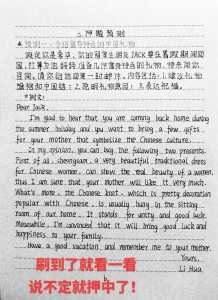 Dear Jack,
I'm glad to hear that you are coming back home during
the summer holiday and you want to bring a few gifts
for your mother that symbolize the Chinese culture.
In my opinion, you can buy the following two presents.
First of all, cheongsam, a very beautiful traditional dress
for Chinese women, can show the real beauty of a women,
thus I am sure that your mother will like it very much.
What's more, the Chinese knot, which is pretty popular
decoration with Chinese, is usually hung in the sitting
room of our home. It stands for unity and good luck.
Meanwhile, I'm convinced that it will bring good luck and
happiness to your family.
Have a good vacation and remember me to your mother.
Yours,
Li Hua
刷到了就看一看
说不定就押中了！